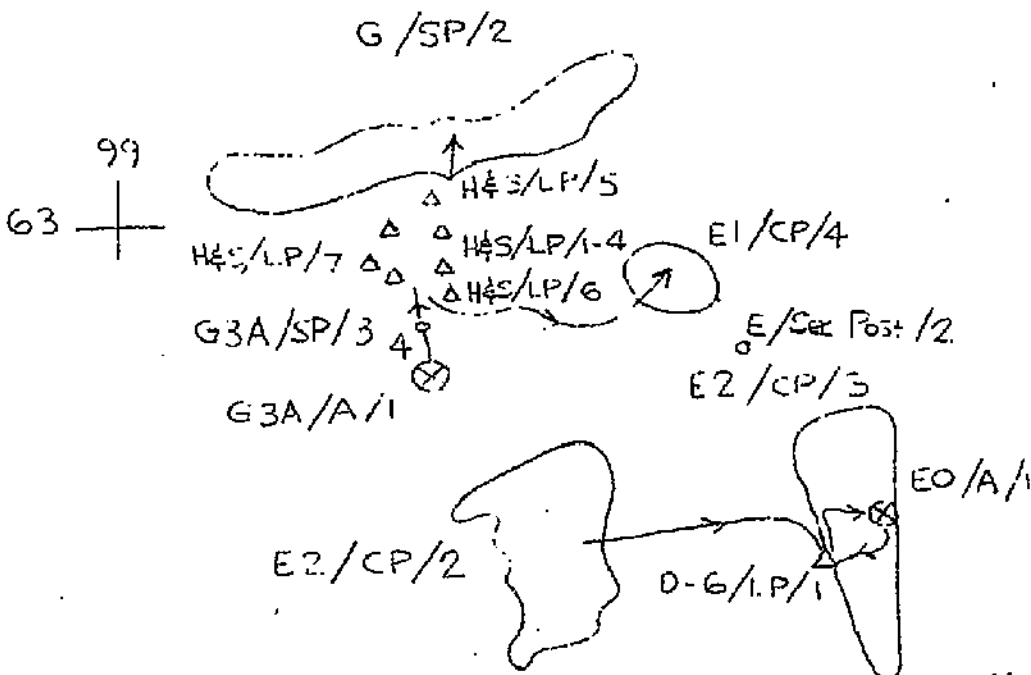 G/SP/2
99
63
H&S/LP/5
H&S/LP/7
H&S/LP/1-4
E1/CP/4
H&S/LP/6
G3A/SP/3
4
E/Sec Post/2
G3A/A/1
E2/CP/3
E0/A/1
E2/CP/2
D-6/LP/1